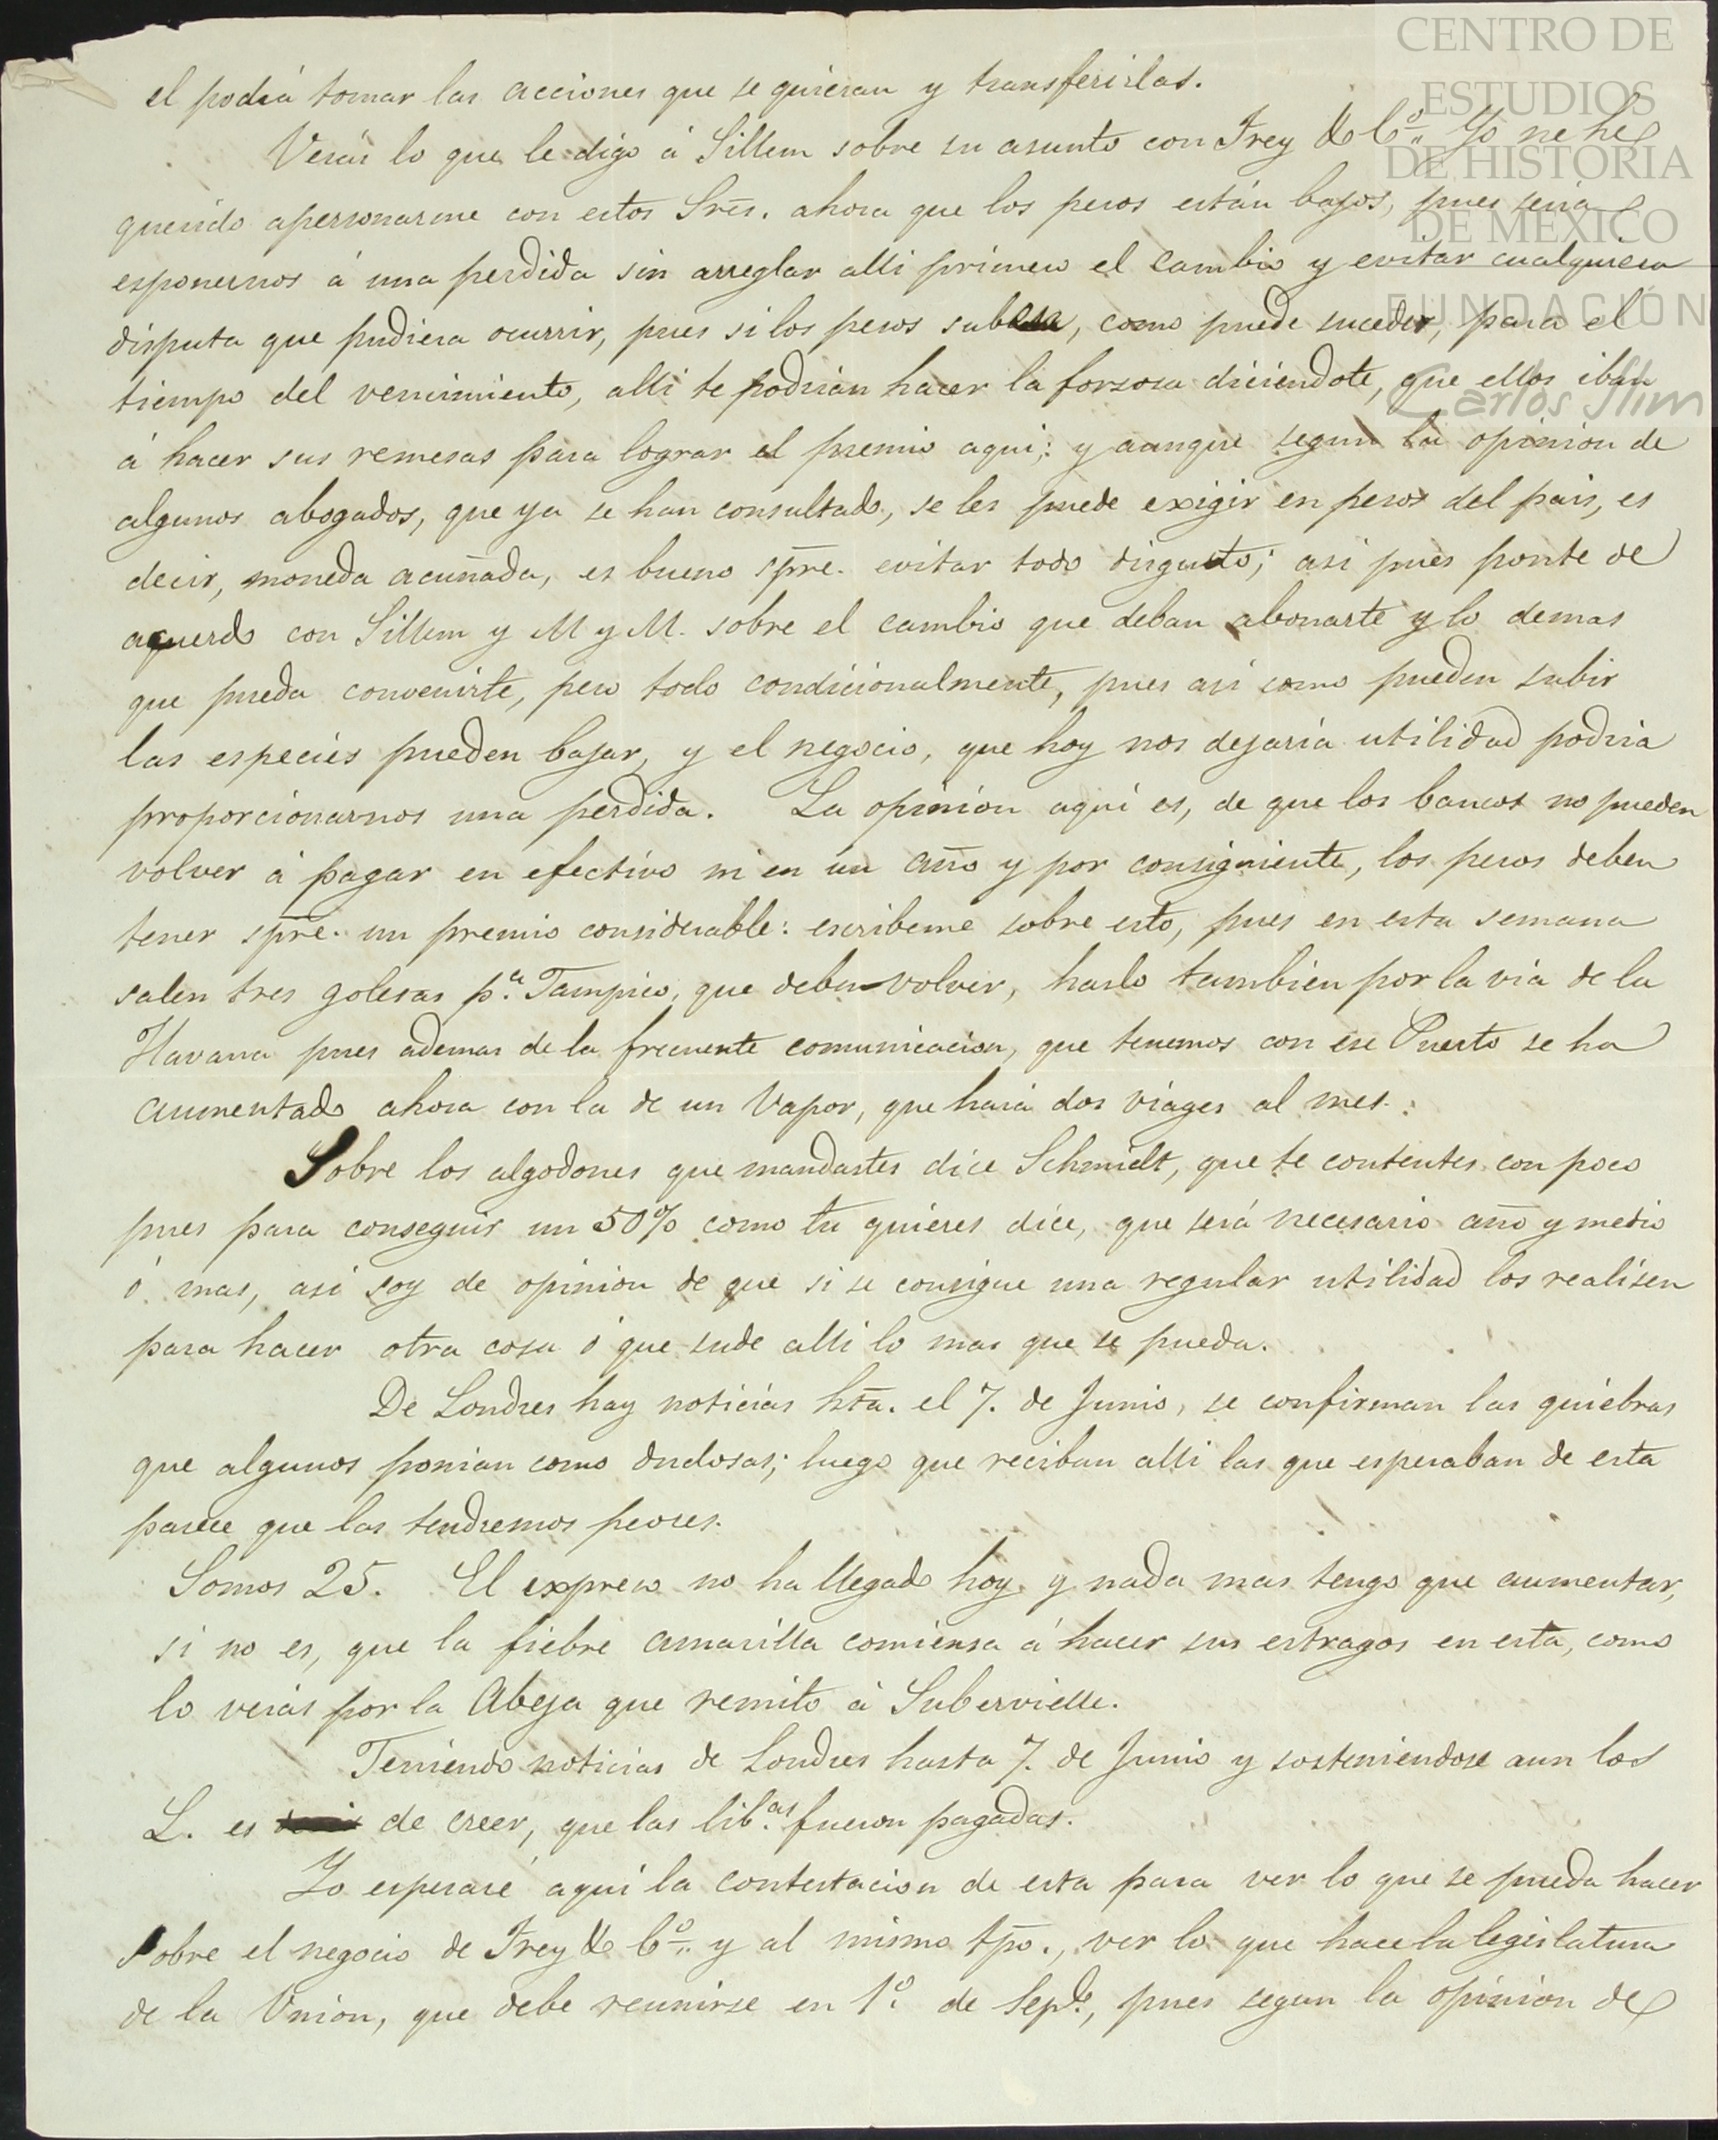 CENTRO DE
ESTUDIOS
DE HISTORIA
DE MEXICO
FUNDACIÓN
Carlos Slim
el podrá tomar las acciones que se quieran y transferirlas.
Verás lo que le digo á Sillem sobre su asunto con Frey & Cº. Yo ne he
querido apersonarme con estos Sres. ahora que los pesos están bajos, pues seria
esponernos á una perdida sin arreglar alli primero el cambio y evitar cualquiera
disputa que pudiera ocurrir, pues si los pesos suben, como puede suceder, para el
tiempo del vencimiento, alli te podrian hacer la forsosa diciendote, que ellos iban
á hacer sus remesas para lograr el premio aqui; y aunque segun la opinion de
algunos abogados, que ya se han consultado, se les puede exigir en pesos del pais, es
decir, moneda acuñada, es bueno spre. evitar todo disgusto; asi pues ponte de
acuerdo con Sillem y M y M. sobre el cambio que deban abonarte y lo demas
que pueda convenirte, pero todo condicionalmente, pues asi como pueden subir
las especies pueden bajar, y el negocio, que hoy nos dejaria utilidad podria
proporcionarnos una perdida. La opinion aqui es, de que los bancos no pueden
volver á pagar en efectivo ni en un año y por consiguiente, los pesos deben
tener spre. un premio considerable: escribeme sobre esto, pues en esta semana
salen tres goletas pª. Tampico, que deben volver, hazlo tambien por la via de la
Havana pues ademas de la frecuente comunicacion, que tenemos con ese Puerto se ha
aumentado ahora con la de un Vapor, que hará dos viages al mes.
Sobre los algodones que mandastes dice Schmidt, que te contentes con poco
pues para conseguir un 50% como tu quieres dice, que será necesario año y medio
ó mas, asi soy de opinion de que si se consigue una regular utilidad los realisen
para hacer otra cosa ó que sude alli lo mas que se pueda.
De Londres hay noticias hta. el 7. de Junio, se confirman las quiebras
que algunos ponian como dudosas; luego que reciban alli las que esperaban de esta
parece que las tendremos peores.
Somos 25. El expreso no ha llegado hoy y nada mas tengo que aumentar,
si no es, que la fiebre amarilla comiensa á hacer sus estragos en esta, como
lo verás por la Abeja que remito á Subervielle.
Teniendo noticias de Londres hasta 7. de Junio y sosteniendose aun los
L. es de creer, que las lib.as fueron pagadas.
Yo esperaré aqui la contestacion de esta para ver lo que se pueda hacer
sobre el negocio de Frey & Cº. y al mismo tpo., ver lo que hace la legislatura
de la Union, que debe reunirse en 1º. de Sepe., pues segun la opinion de